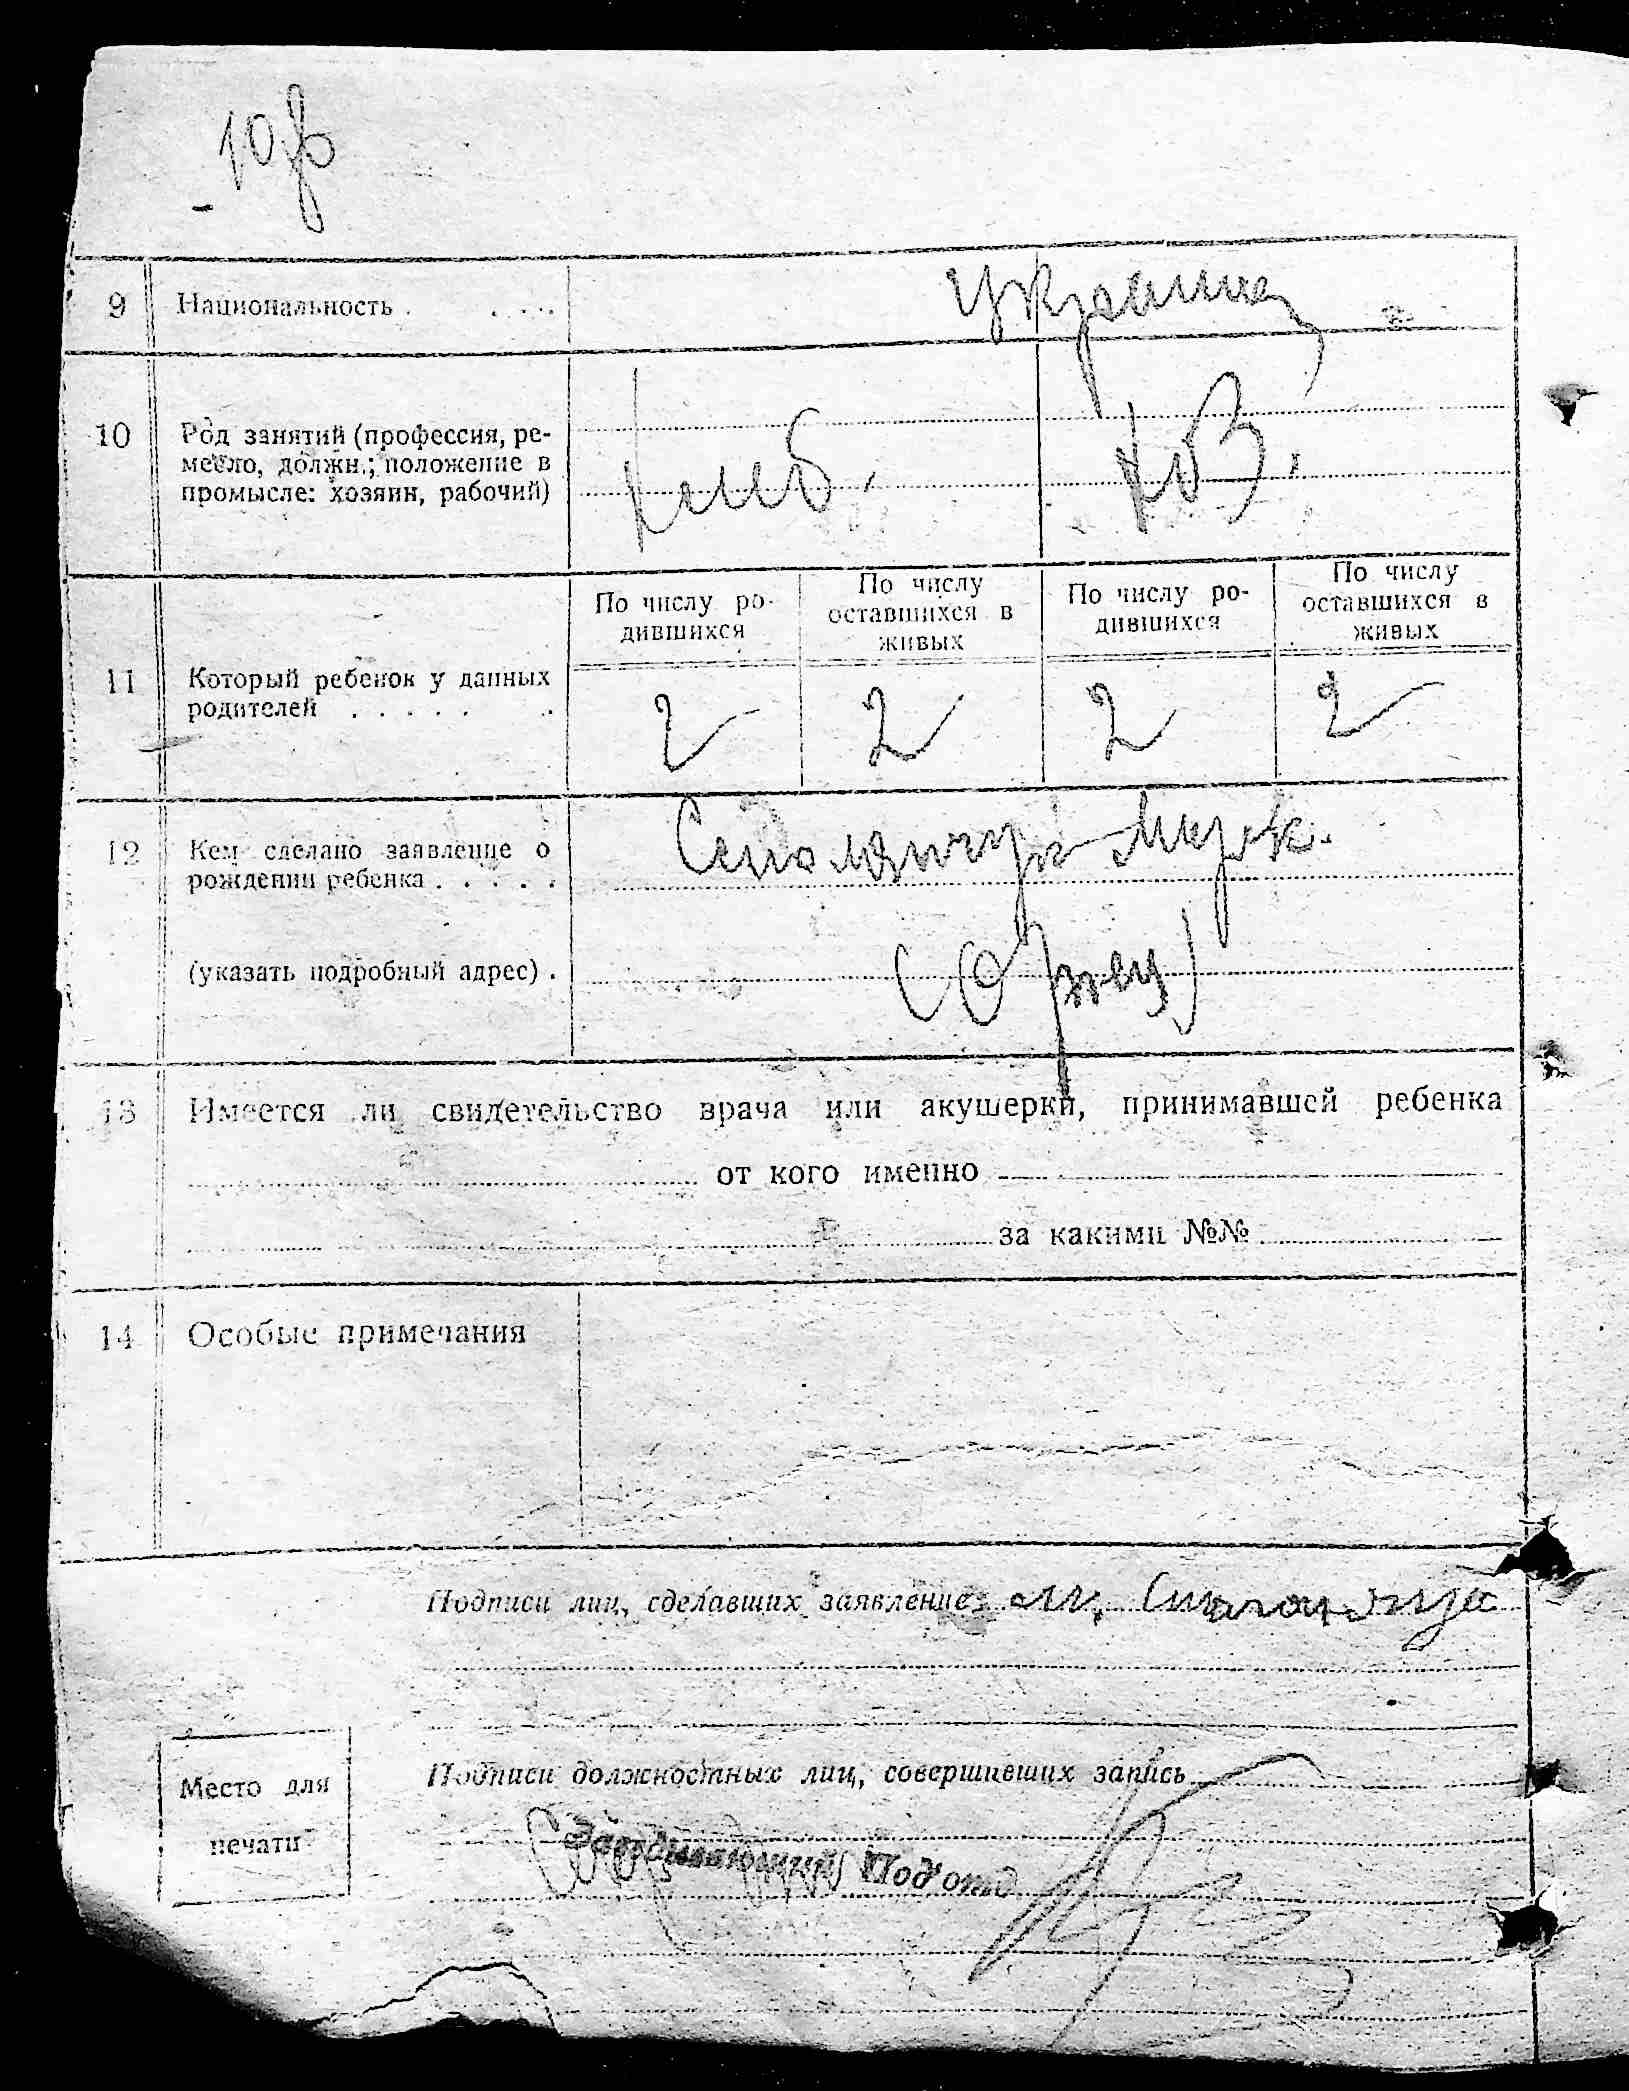 9 Национальность . . . . . украинец
10 Род занятий (профессия, ре-
месло, должн.; положение в
промысле: хозяин, рабочий)
11 Который ребенок у данных
родителей . . . . . . .
По числу ро-
дившихся
По числу
оставшихся в
живых
По числу ро-
дившихся
По числу
оставшихся в
живых
2 2 2 2
12 Кем сделано заявление о
рождении ребенка . . . . .
(указать подробный адрес) .
13 Имеется ли свидетельство врача или акушерки, принимавшей ребенка
от кого именно
за какими №№
14 Особые примечания
Подписи лиц, сделавших заявление:
Подписи должностных лиц, совершивших запись
Место для
печати
Заведывающий Под'отд